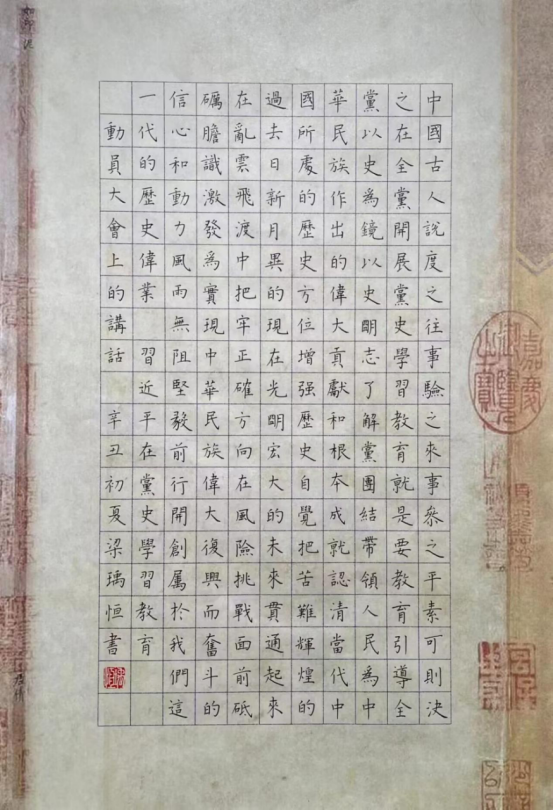 中國古人說度之往事驗之來事參之平素可則決
之在全黨開展黨史學習教育就是要教育引導全
黨以史為鏡以史明志了解黨團結帶領人民為中
華民族作出的偉大貢獻和根本成就認清當代中
國所處的歷史方位增强歷史自覺把苦難輝煌的
過去日新月異的現在光明宏大的未來貫通起來
在亂雲飛渡中把牢正確方向在風險挑戰面前砥
礪膽識激發為實現中華民族偉大復興而奮斗的
信心和動力風雨無阻堅毅前行開創屬於我們這
一代的歷史偉業 習近平在黨史學習教育
動員大會上的講話 辛丑初夏梁瑀恒書
嘉慶御覽之寶